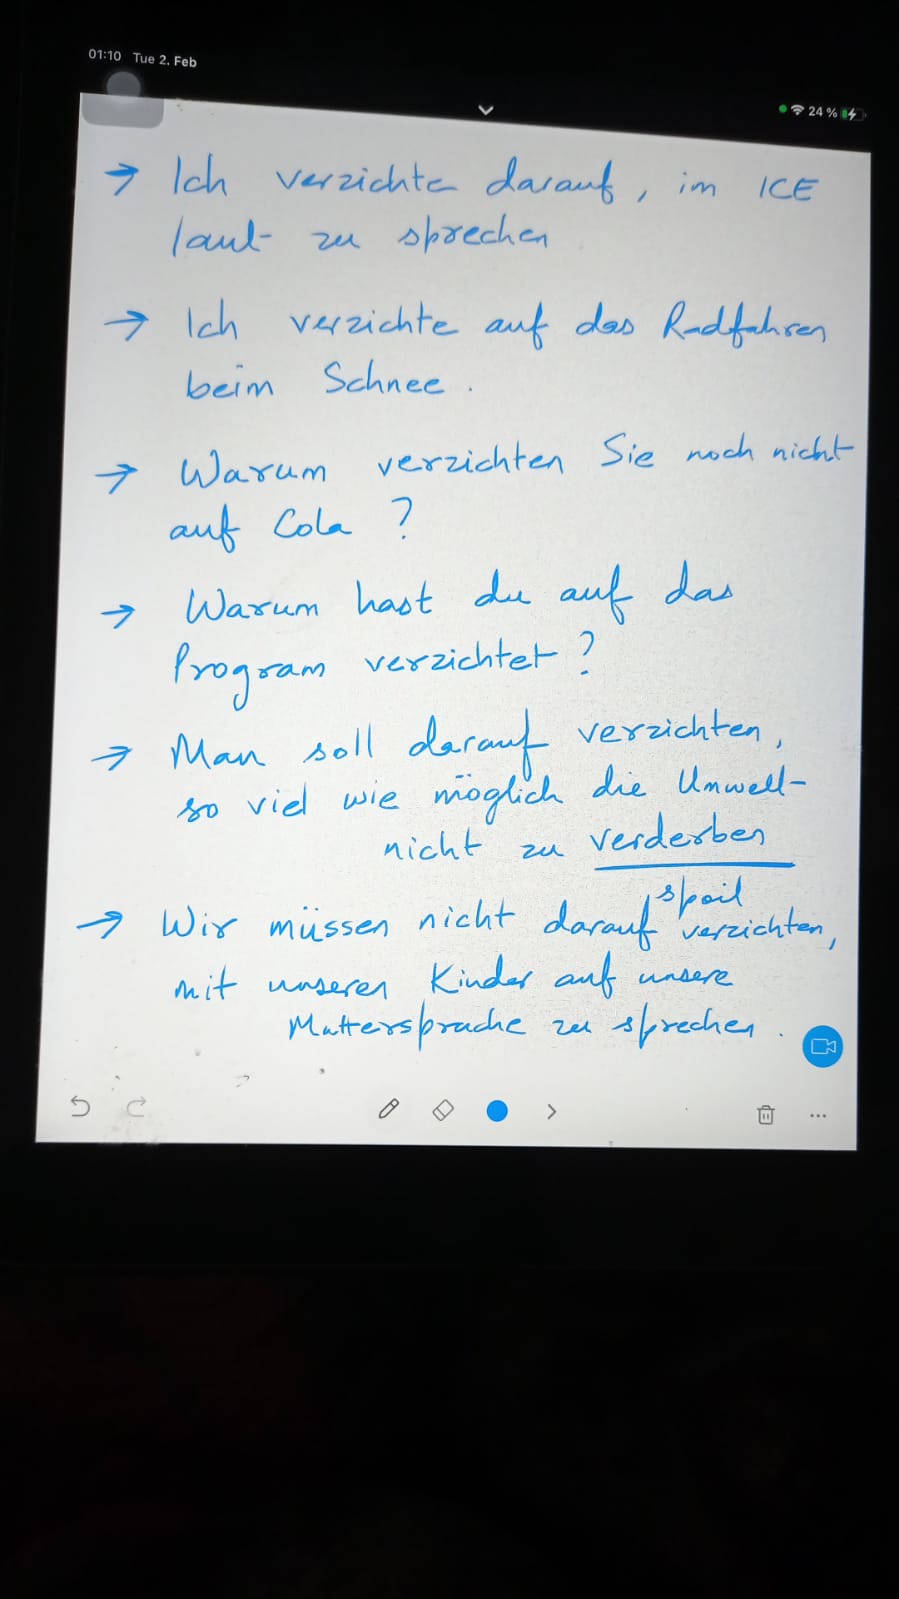 01:10 Tue 2. Feb
24 %
→ Ich verzichte darauf, im ICE
laut zu sprechen
→ Ich verzichte auf das Radfahren
beim Schnee.
→ Warum verzichten Sie noch nicht
auf Cola ?
→ Warum hast du auf das
Program verzichtet ?
→ Man soll darauf verzichten,
so viel wie möglich die Umwelt
nicht zu verderben
spoil
→ Wir müssen nicht darauf verzichten,
mit unseren Kinder auf unsere
Muttersprache zu sprechen.